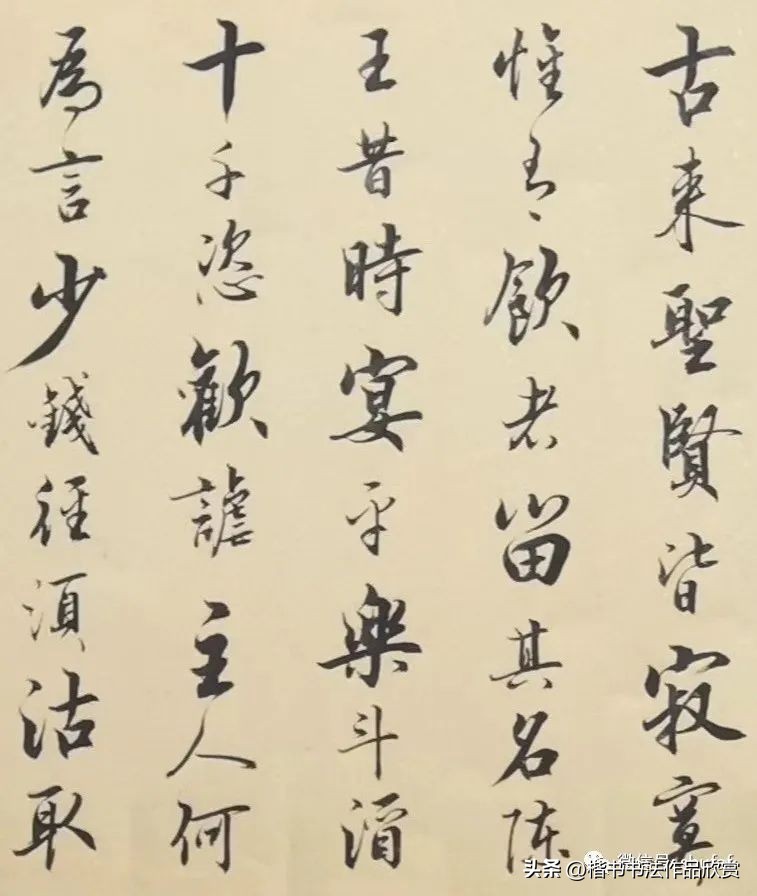 古来聖賢皆寂寞
惟有飲者留其名陈
王昔時宴平樂斗酒
十千恣歡謔主人何
為言少錢徑須沽取
头条 @楷书书法作品欣赏